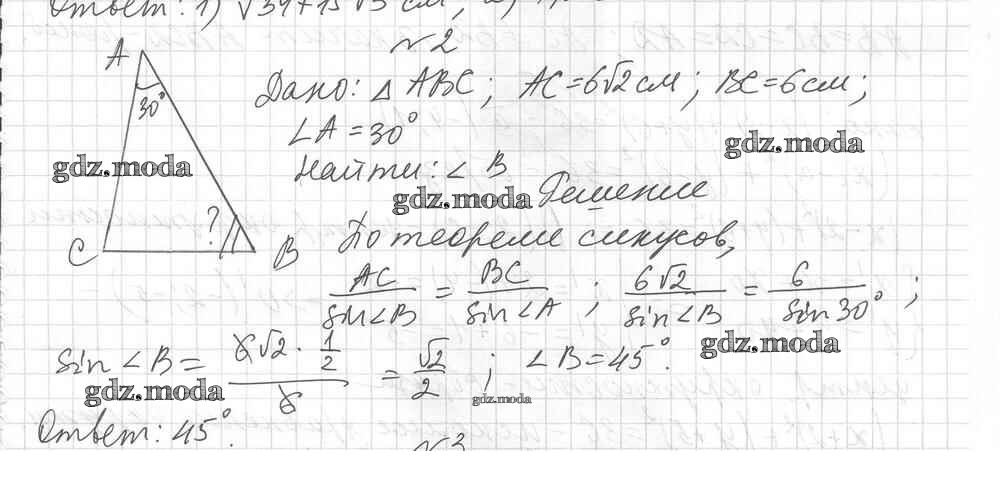 Ответ: 1) √34+15√3 см;
№2
A
30°
C
B
?
Дано: △ ABC; AC=6√2 см; BC=6 см;
∠A=30°
gdz.moda
gdz.moda
Найти: ∠ B
gdz.moda
Решение
По теореме синусов,
AC/sin∠B = BC/sin∠A ; 6√2/sin∠B = 6/sin30° ;
gdz.moda
sin ∠B = 6√2 · 1/2 / 6 = √2/2 ; ∠B=45°.
gdz.moda
gdz.moda
Ответ: 45°.
№3